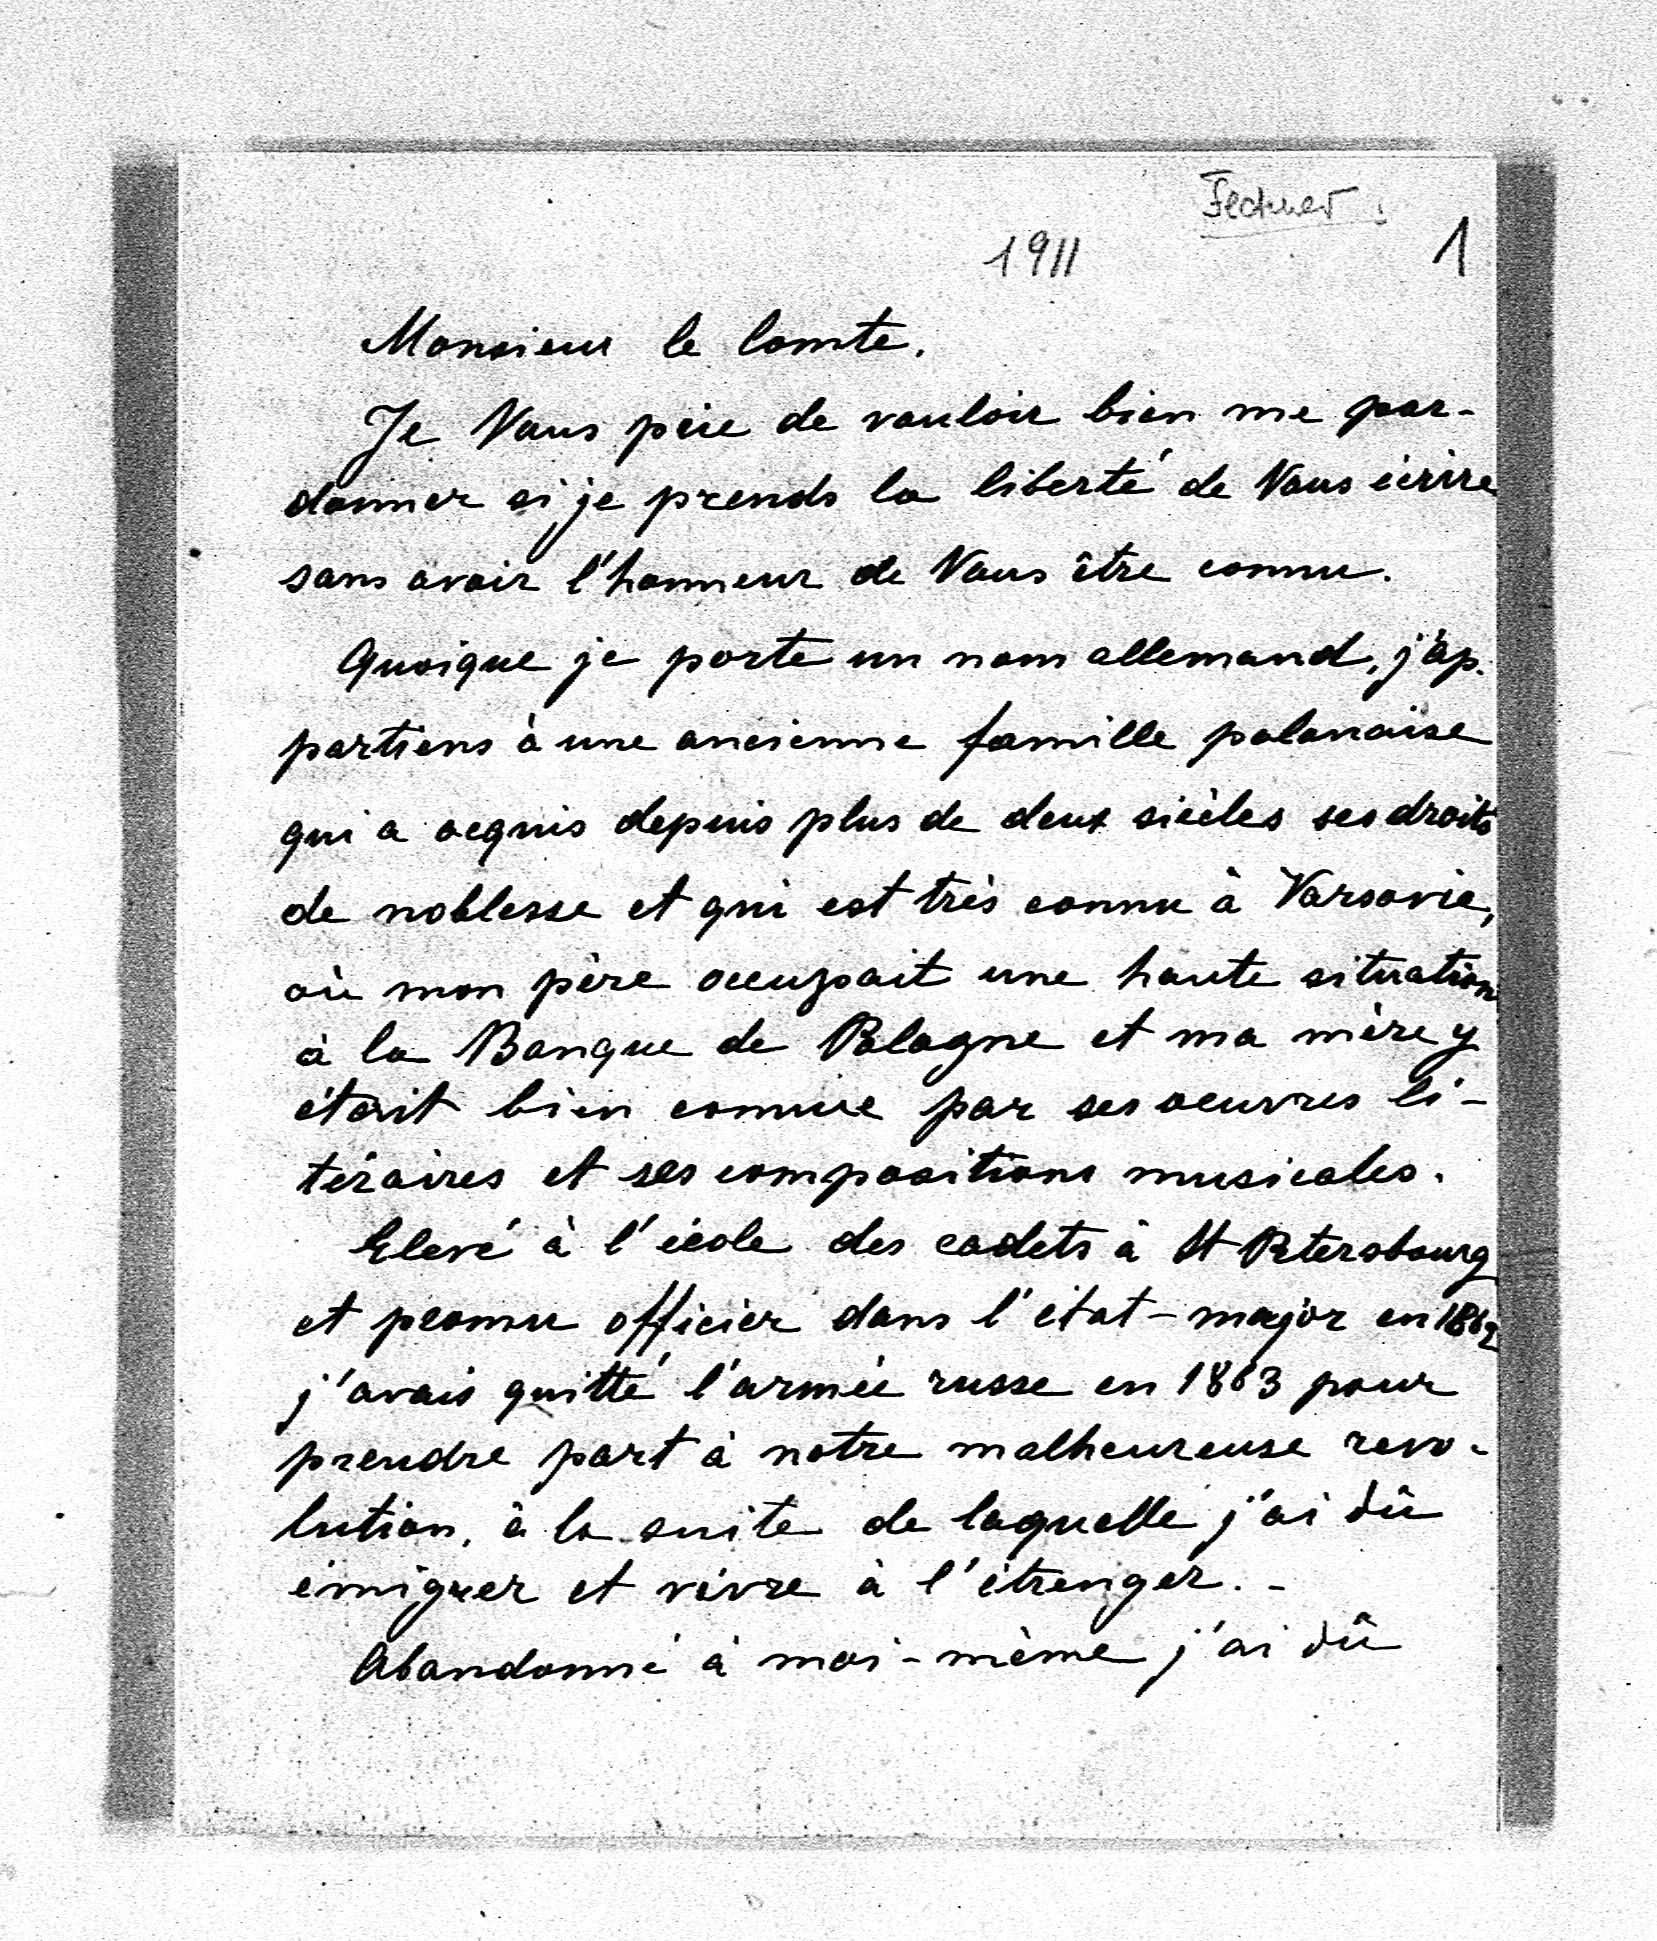 Fechner.
1911
1
Monsieur le Comte.
Je Vous prie de vouloir bien me par-
donner si je prends la liberté de Vous écrire
sans avoir l'honneur de Vous être connu.
Quoique je porte un nom allemand, j'ap-
partiens à une ancienne famille polonaise
qui a acquis depuis plus de deux siècles ses droits
de noblesse et qui est très connu à Varsovie,
où mon père occupait une haute situation
à la Banque de Pologne et ma mère y
était bien connue par ses oeuvres li-
téraires et ses compositions musicales.
Elevé à l'école des cadets à St Petersbourg
et promu officier dans l'état-major en 1862
j'avais quitté l'armée russe en 1863 pour
prendre part à notre malheureuse revo-
lution, à la suite de laquelle j'ai dû
émigrer et vivre à l'étranger. -
Abandonné à moi-même j'ai dû